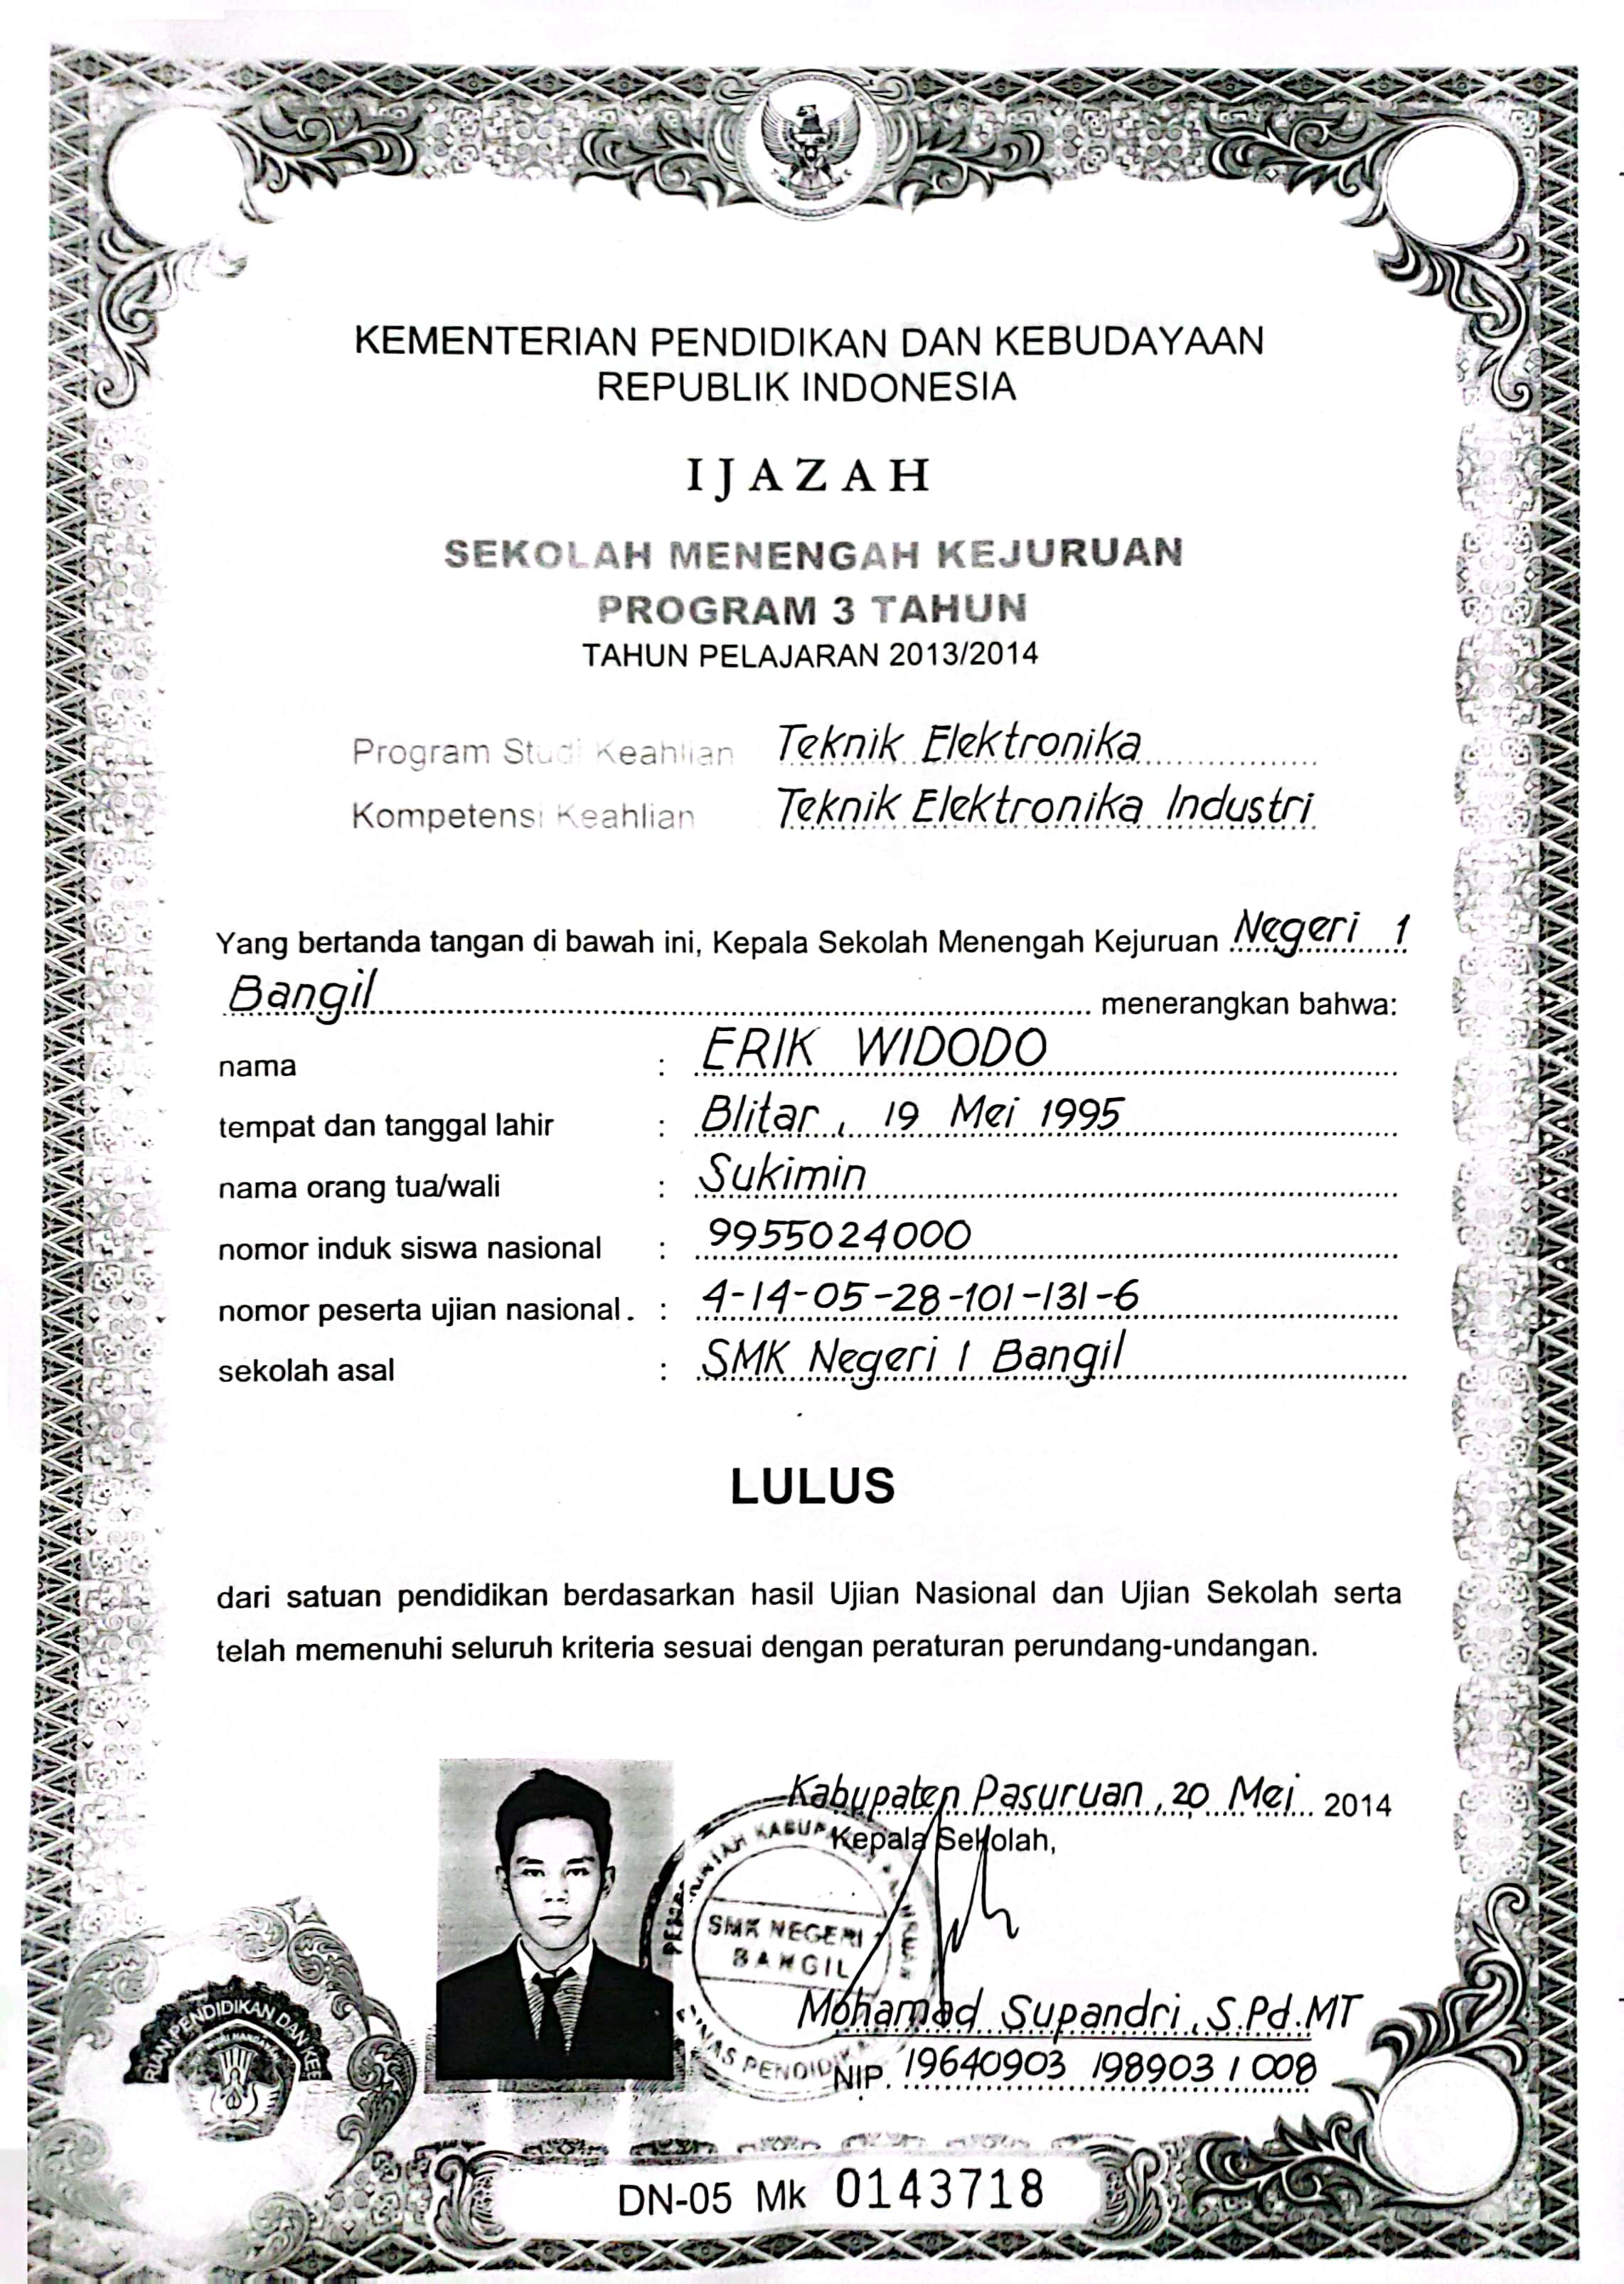 KEMENTERIAN PENDIDIKAN DAN KEBUDAYAAN
REPUBLIK INDONESIA
IJAZAH
SEKOLAH MENENGAH KEJURUAN
PROGRAM 3 TAHUN
TAHUN PELAJARAN 2013/2014
Program Studi Keahlian Teknik Elektronika
Kompetensi Keahlian Teknik Elektronika Industri
Yang bertanda tangan di bawah ini, Kepala Sekolah Menengah Kejuruan Negeri 1
Bangil menerangkan bahwa:
nama : ERIK WIDODO
tempat dan tanggal lahir : Blitar, 19 Mei 1995
nama orang tua/wali : Sukimin
nomor induk siswa nasional : 9955024000
nomor peserta ujian nasional : 4-14-05-28-101-131-6
sekolah asal : SMK Negeri 1 Bangil
LULUS
dari satuan pendidikan berdasarkan hasil Ujian Nasional dan Ujian Sekolah serta
telah memenuhi seluruh kriteria sesuai dengan peraturan perundang-undangan.
Kabupaten Pasuruan, 20 Mei 2014
Kepala Sekolah,
SMK NEGERI 1
BANGIL
Mohamad Supandri, S.Pd.MT
NIP. 19640903 198903 1 008
RIAN PENDIDIKAN DAN KEBU
DN-05 Mk 0143718